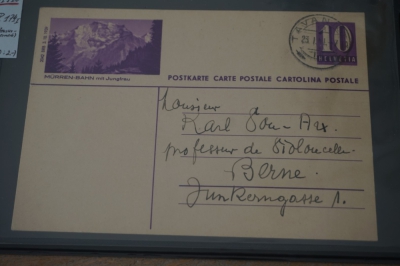 MÜRREN-BAHN mit Jungfrau
TAVANN
10
HELVETIA
POSTKARTE CARTE POSTALE CARTOLINA POSTALE
Monsieur
Karl Von-Arx
professeur de Violoncelle
Berne
Junkerngasse 1.